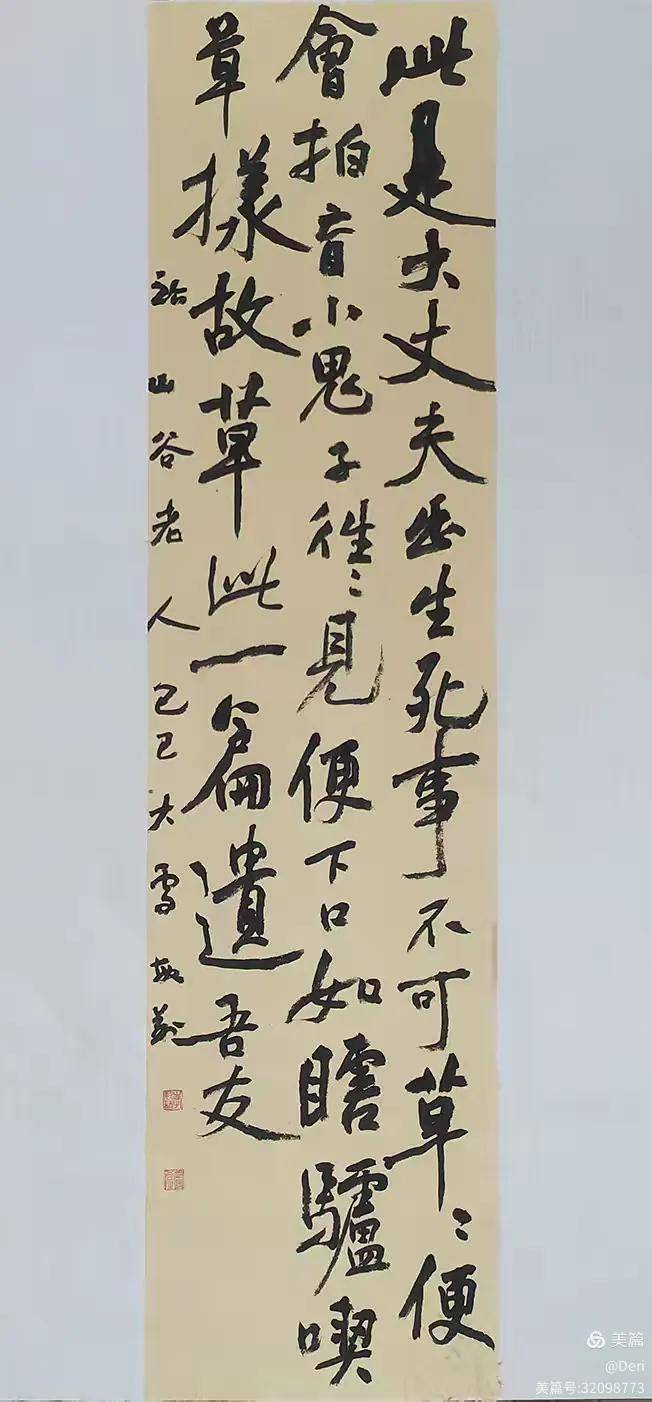 此是大丈夫出生死事不可草〻便
會拍盲小鬼子往〻見便下口如瞎驢喫
草樣故草此一篇遺吾友
山谷老人 己巳大雪
美篇
@Deri
美篇号:32098773